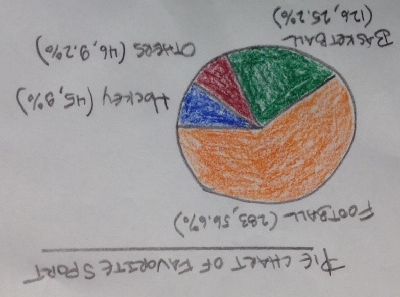 PIE CHART OF FAVORITE SPORT
FOOTBALL (283, 56.6%)
Hockey (45, 9%)
OTHERS (46, 9.2%)
BASKETBALL
(126, 25.2%)